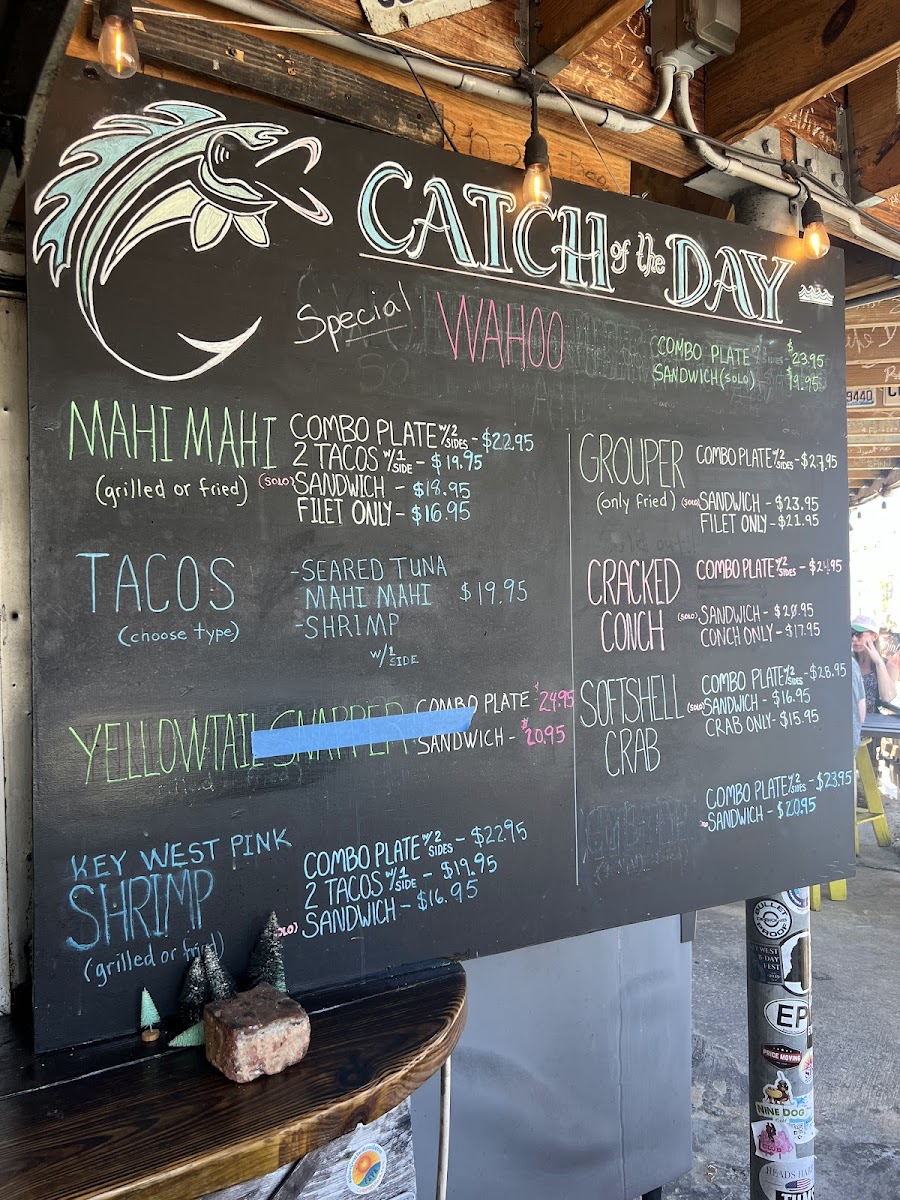 CATCH of the DAY
Special WAHOO
COMBO PLATE $23.95
SANDWICH (SOLO)
MAHI MAHI
(grilled or fried)
COMBO PLATE W/2 SIDES - $22.95
2 TACOS W/1 SIDE - $19.95
(SOLO) SANDWICH - $18.95
FILET ONLY - $16.95
TACOS
(choose type)
- SEARED TUNA
MAHI MAHI $19.95
- SHRIMP
W/1 SIDE
YELLOWTAIL SNAPPER
COMBO PLATE $24.95
SANDWICH - $20.95
KEY WEST PINK
SHRIMP
(grilled or fried)
COMBO PLATE W/2 SIDES - $22.95
2 TACOS W/1 SIDE - $19.95
SANDWICH - $16.95
GROUPER
(only fried)
COMBO PLATE W/2 SIDES - $27.95
(SOLO) SANDWICH - $23.95
FILET ONLY - $21.95
CRACKED
CONCH
COMBO PLATE W/2 SIDES
(SOLO) SANDWICH - $20.95
CONCH ONLY - $17.95
SOFTSHELL
CRAB
COMBO PLATE W/2 SIDES - $28.95
(SOLO) SANDWICH - $16.95
CRAB ONLY - $15.95
COMBO PLATE W/2 SIDES - $23.95
SANDWICH - $20.95
BULLET
PROOF
EP
PRICE MOVING
NINE DOG